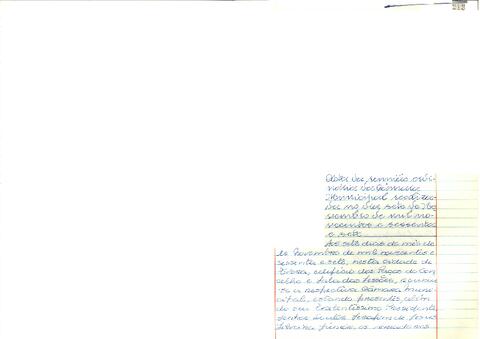 Acta da reunião ordi-
nária da Câmara
Municipal realiza-
da no dia sete de No-
vembro de mil no-
vecentos e sessenta
e sete
Aos sete dias do mês de
Novembro de mil novecentos e
sessenta e sete, nesta cidade de
edifício dos Paços do Con-
celho e Sala das Sessões, reuniu-
se a respectiva Câmara Muni-
cipal, estando presentes, além
do seu Excelentíssimo Presidente
Senhor
os vereadores